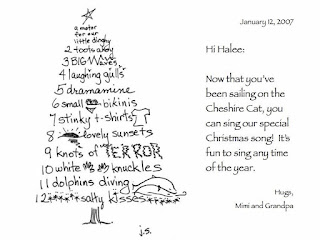 a motor
for our
little dinghy
2 toots ahoy
3 BIG Waves
4 laughing gulls
5 dramamine
6 small bikinis
7 stinky t-shirts
8 lovely sunsets
9 knots of TERROR
10 white knuckles
11 dolphins diving
12 salty kisses
j.s.
January 12, 2007
Hi Halee:
Now that you've
been sailing on the
Cheshire Cat, you
can sing our special
Christmas song! It's
fun to sing any time
of the year.
Hugs,
Mimi and Grandpa